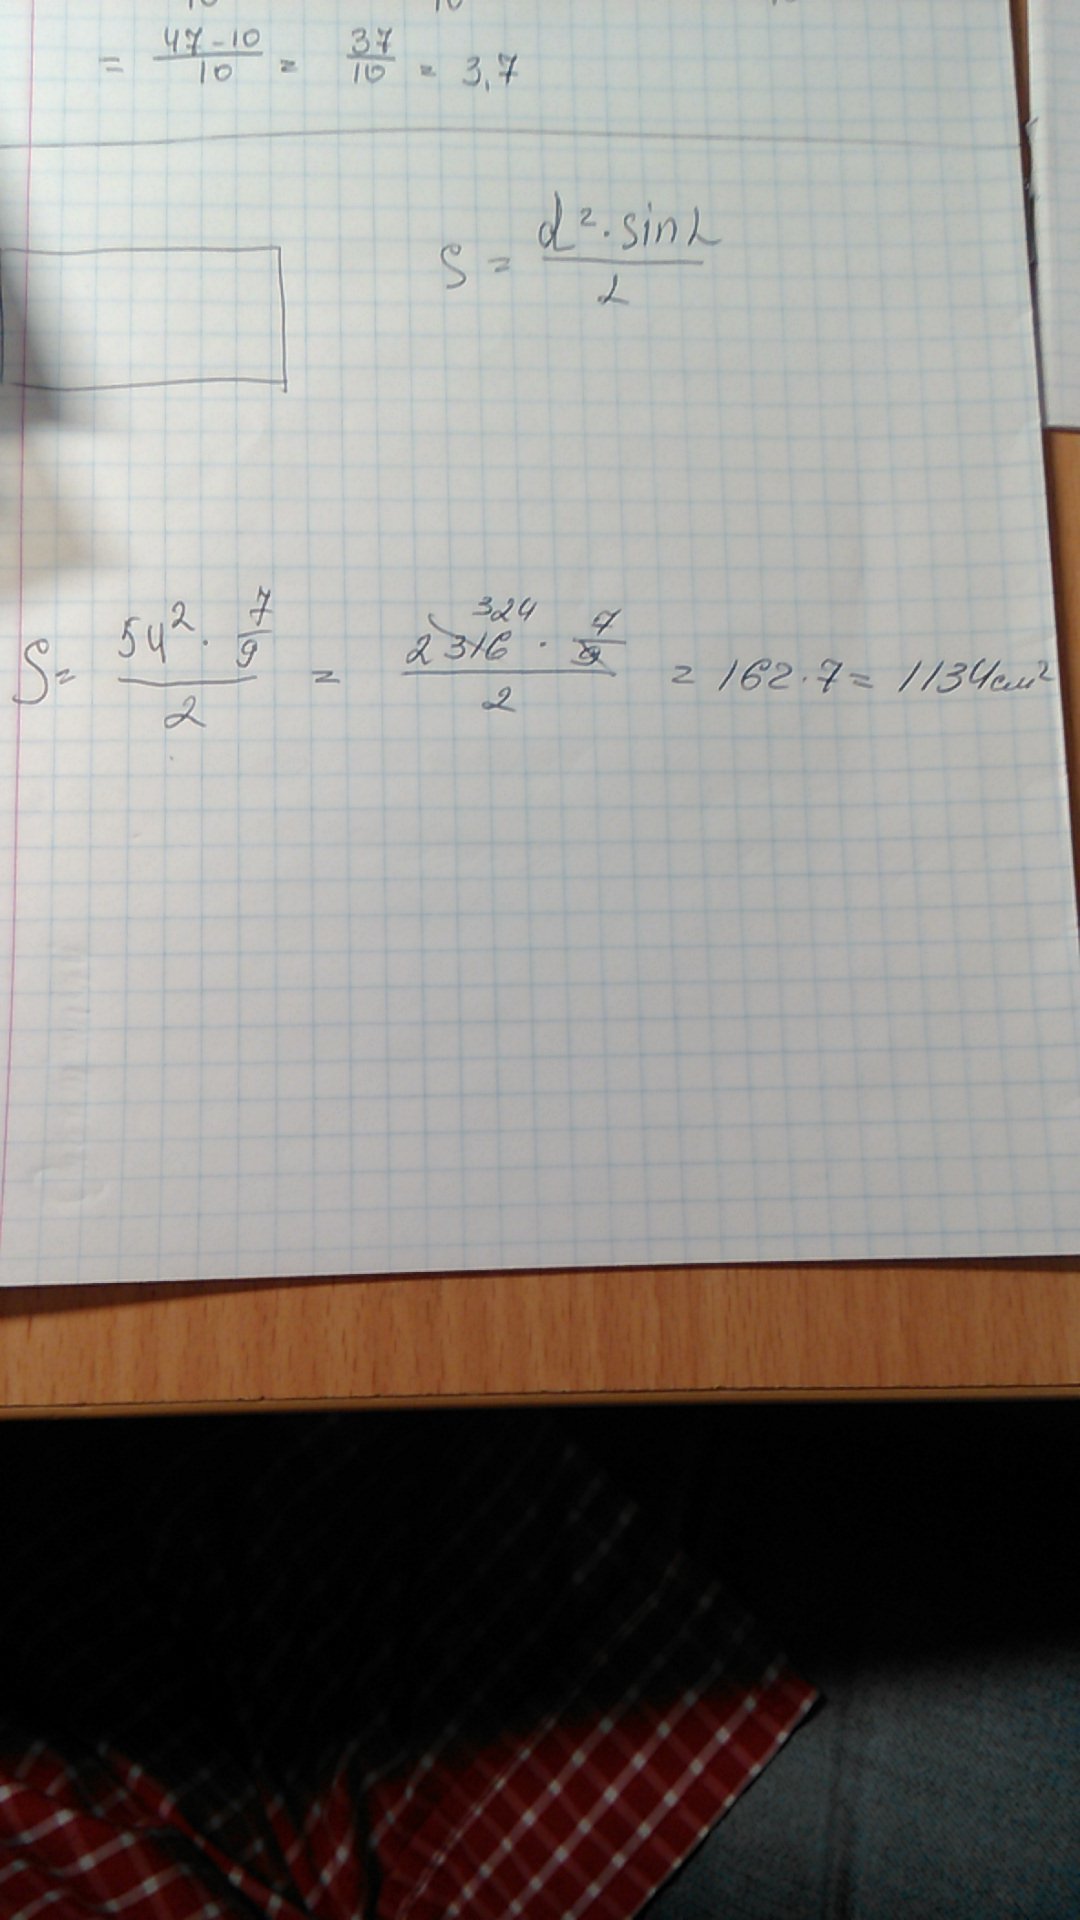 = 47-10/10 = 37/10 = 3,7
S = d²·sinL/2
S = 54²·7/9/2 = 2316 324 · 7/9/2 = 162·7 = 1134см²